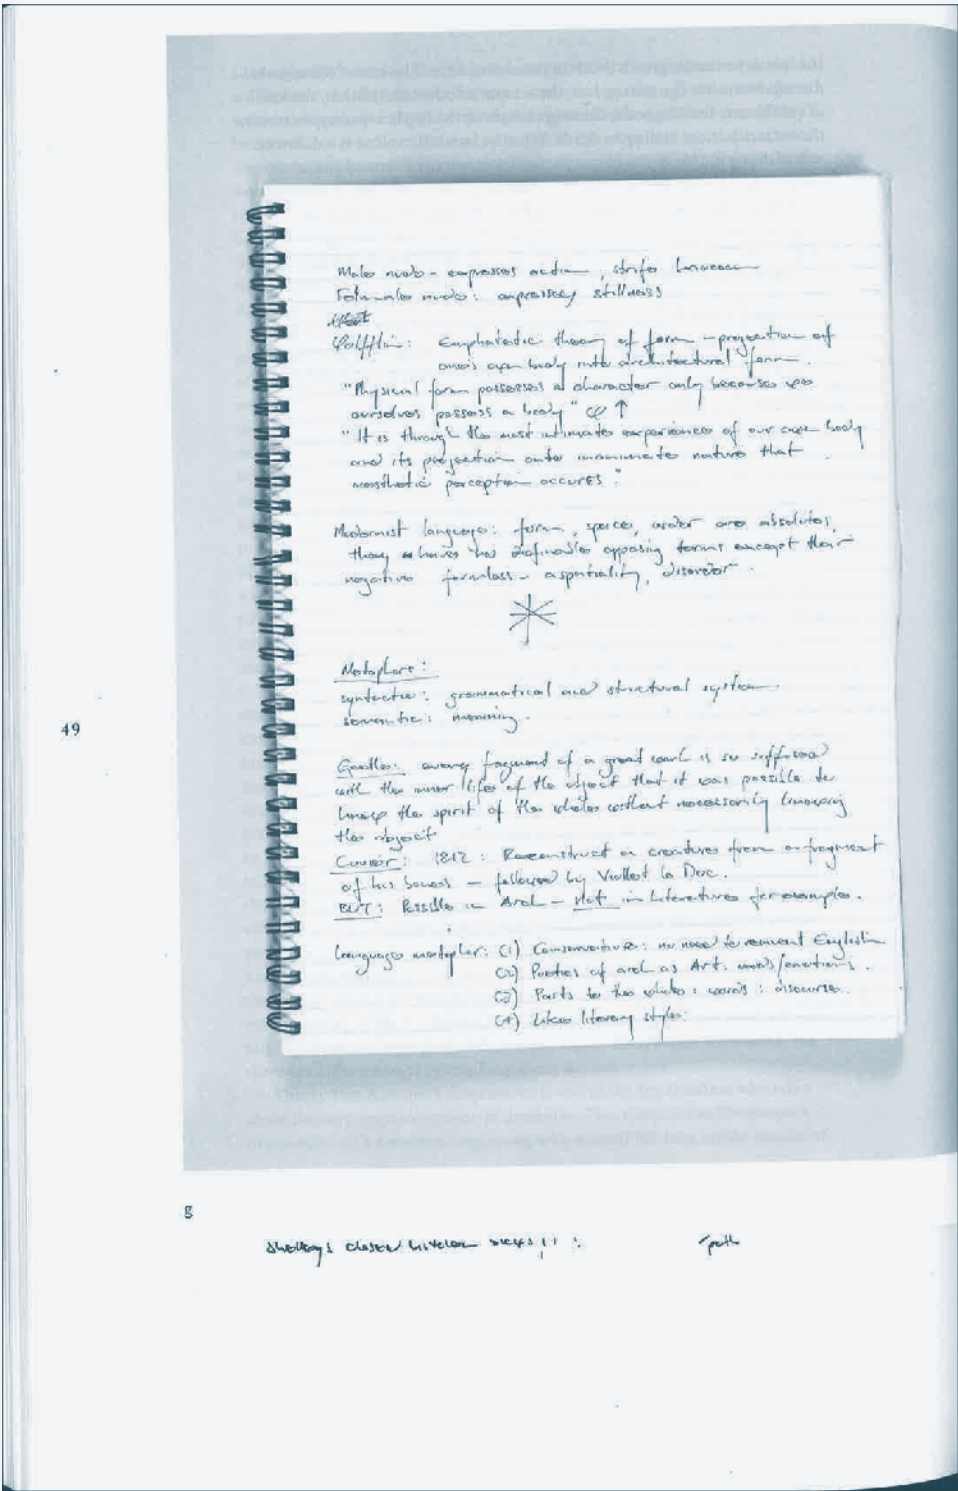 Male nude - expresses action, strife
Female nude: expresses stillness
Wölfflin: Emphatetic theory of form - projection of
one's own body into architectural form.
"Physical form possesses a character only because we
ourselves possess a body" ↑
"It is through the most intimate experience of our own body
and its projection onto inanimate nature that
aesthetic perception occures".
Modernist language: form, space, order are absolutes,
they have no definable opposing forms except their
negative formless - aspatiality, disorder.
Metaphore:
syntactic: grammatical and structural system
semantic: meaning.
Goethe: every fragment of a great work is so suffused
with the inner life of the object that it was possible to
know the spirit of the whole without necessarily knowing
the object
Cuvier: 1812: Reconstruct a creature from a fragment
of his bones - followed by Viollet le Duc.
BUT: Possible in Arch - Not in Literature for example.
Language metaphor: (1) Conservative: no need to reinvent English
(2) Poetics of arch as Art: moods/emotions.
(3) Parts to the whole: words: discourse.
(4) Like literary style.
49
8
path